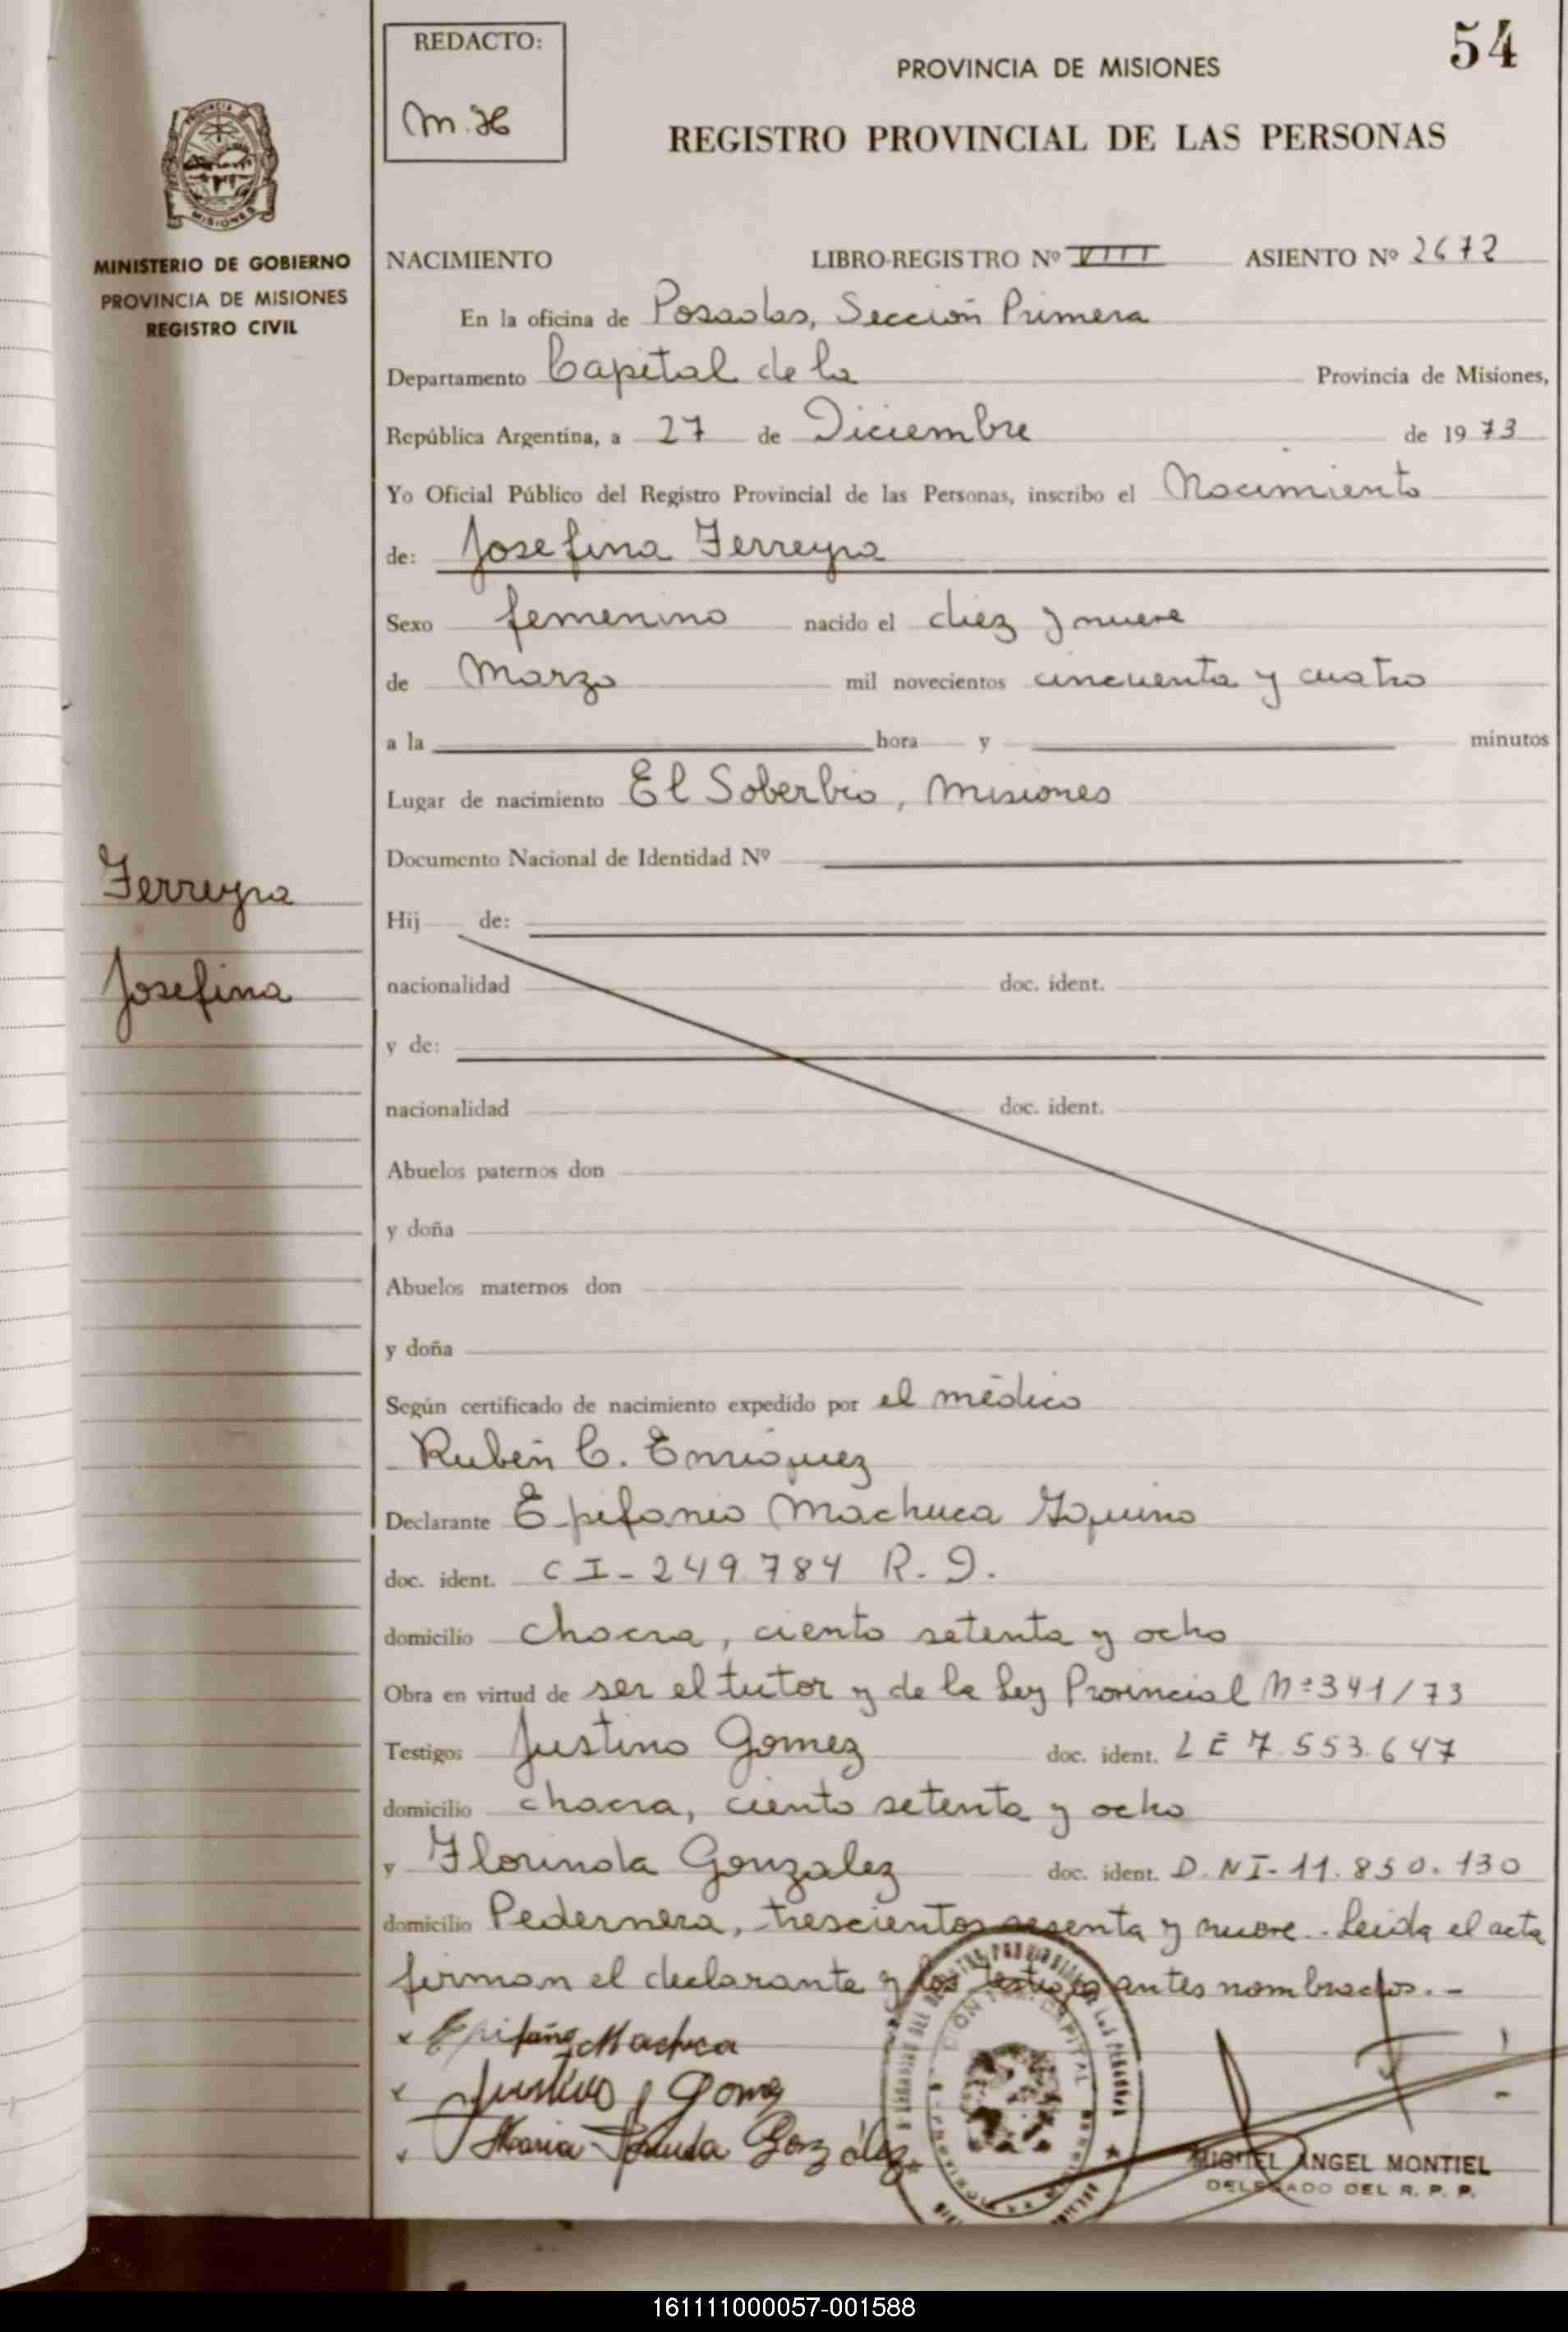 54
REDACTO:
M. H
PROVINCIA DE MISIONES
REGISTRO PROVINCIAL DE LAS PERSONAS
PROVINCIA DE
MISIONES
MINISTERIO DE GOBIERNO
PROVINCIA DE MISIONES
REGISTRO CIVIL
NACIMIENTO LIBRO-REGISTRO Nº VIII ASIENTO Nº 2672
En la oficina de Posadas, Sección Primera
Departamento Capital de la Provincia de Misiones,
República Argentina, a 27 de Diciembre de 1973
Yo Oficial Público del Registro Provincial de las Personas, inscribo el Nacimiento
de: Josefina Ferreyra
Sexo femenino nacido el diez y nueve
de Marzo mil novecientos cincuenta y cuatro
a la hora y minutos
Lugar de nacimiento El Soberbio, Misiones
Documento Nacional de Identidad Nº
Ferreyra
Josefina
Hij de:
nacionalidad doc. ident.
y de:
nacionalidad doc. ident.
Abuelos paternos don
y doña
Abuelos maternos don
y doña
Según certificado de nacimiento expedido por el médico
Rubén C. Enriquez
Declarante Epifanio Machuca
doc. ident. CI-249.784 R.
domicilio chacra, ciento setenta y ocho
Obra en virtud de ser el tutor y de la Ley Provincial Nº 341/73
Testigos Justino Gomez doc. ident. LE 7.553.647
domicilio chacra, ciento setenta y ocho
y Florinda Gonzalez doc. ident. D.NI-11.850.130
domicilio Pedernera, trescientos sesenta y nueve.- Leida el acta
firman el declarante y los testigos antes nombrados.-
Machuca
Justino Gomez
Maria González
MIGUEL ANGEL MONTIEL
DELEGADO DEL R. P. P.
161111000057-001588